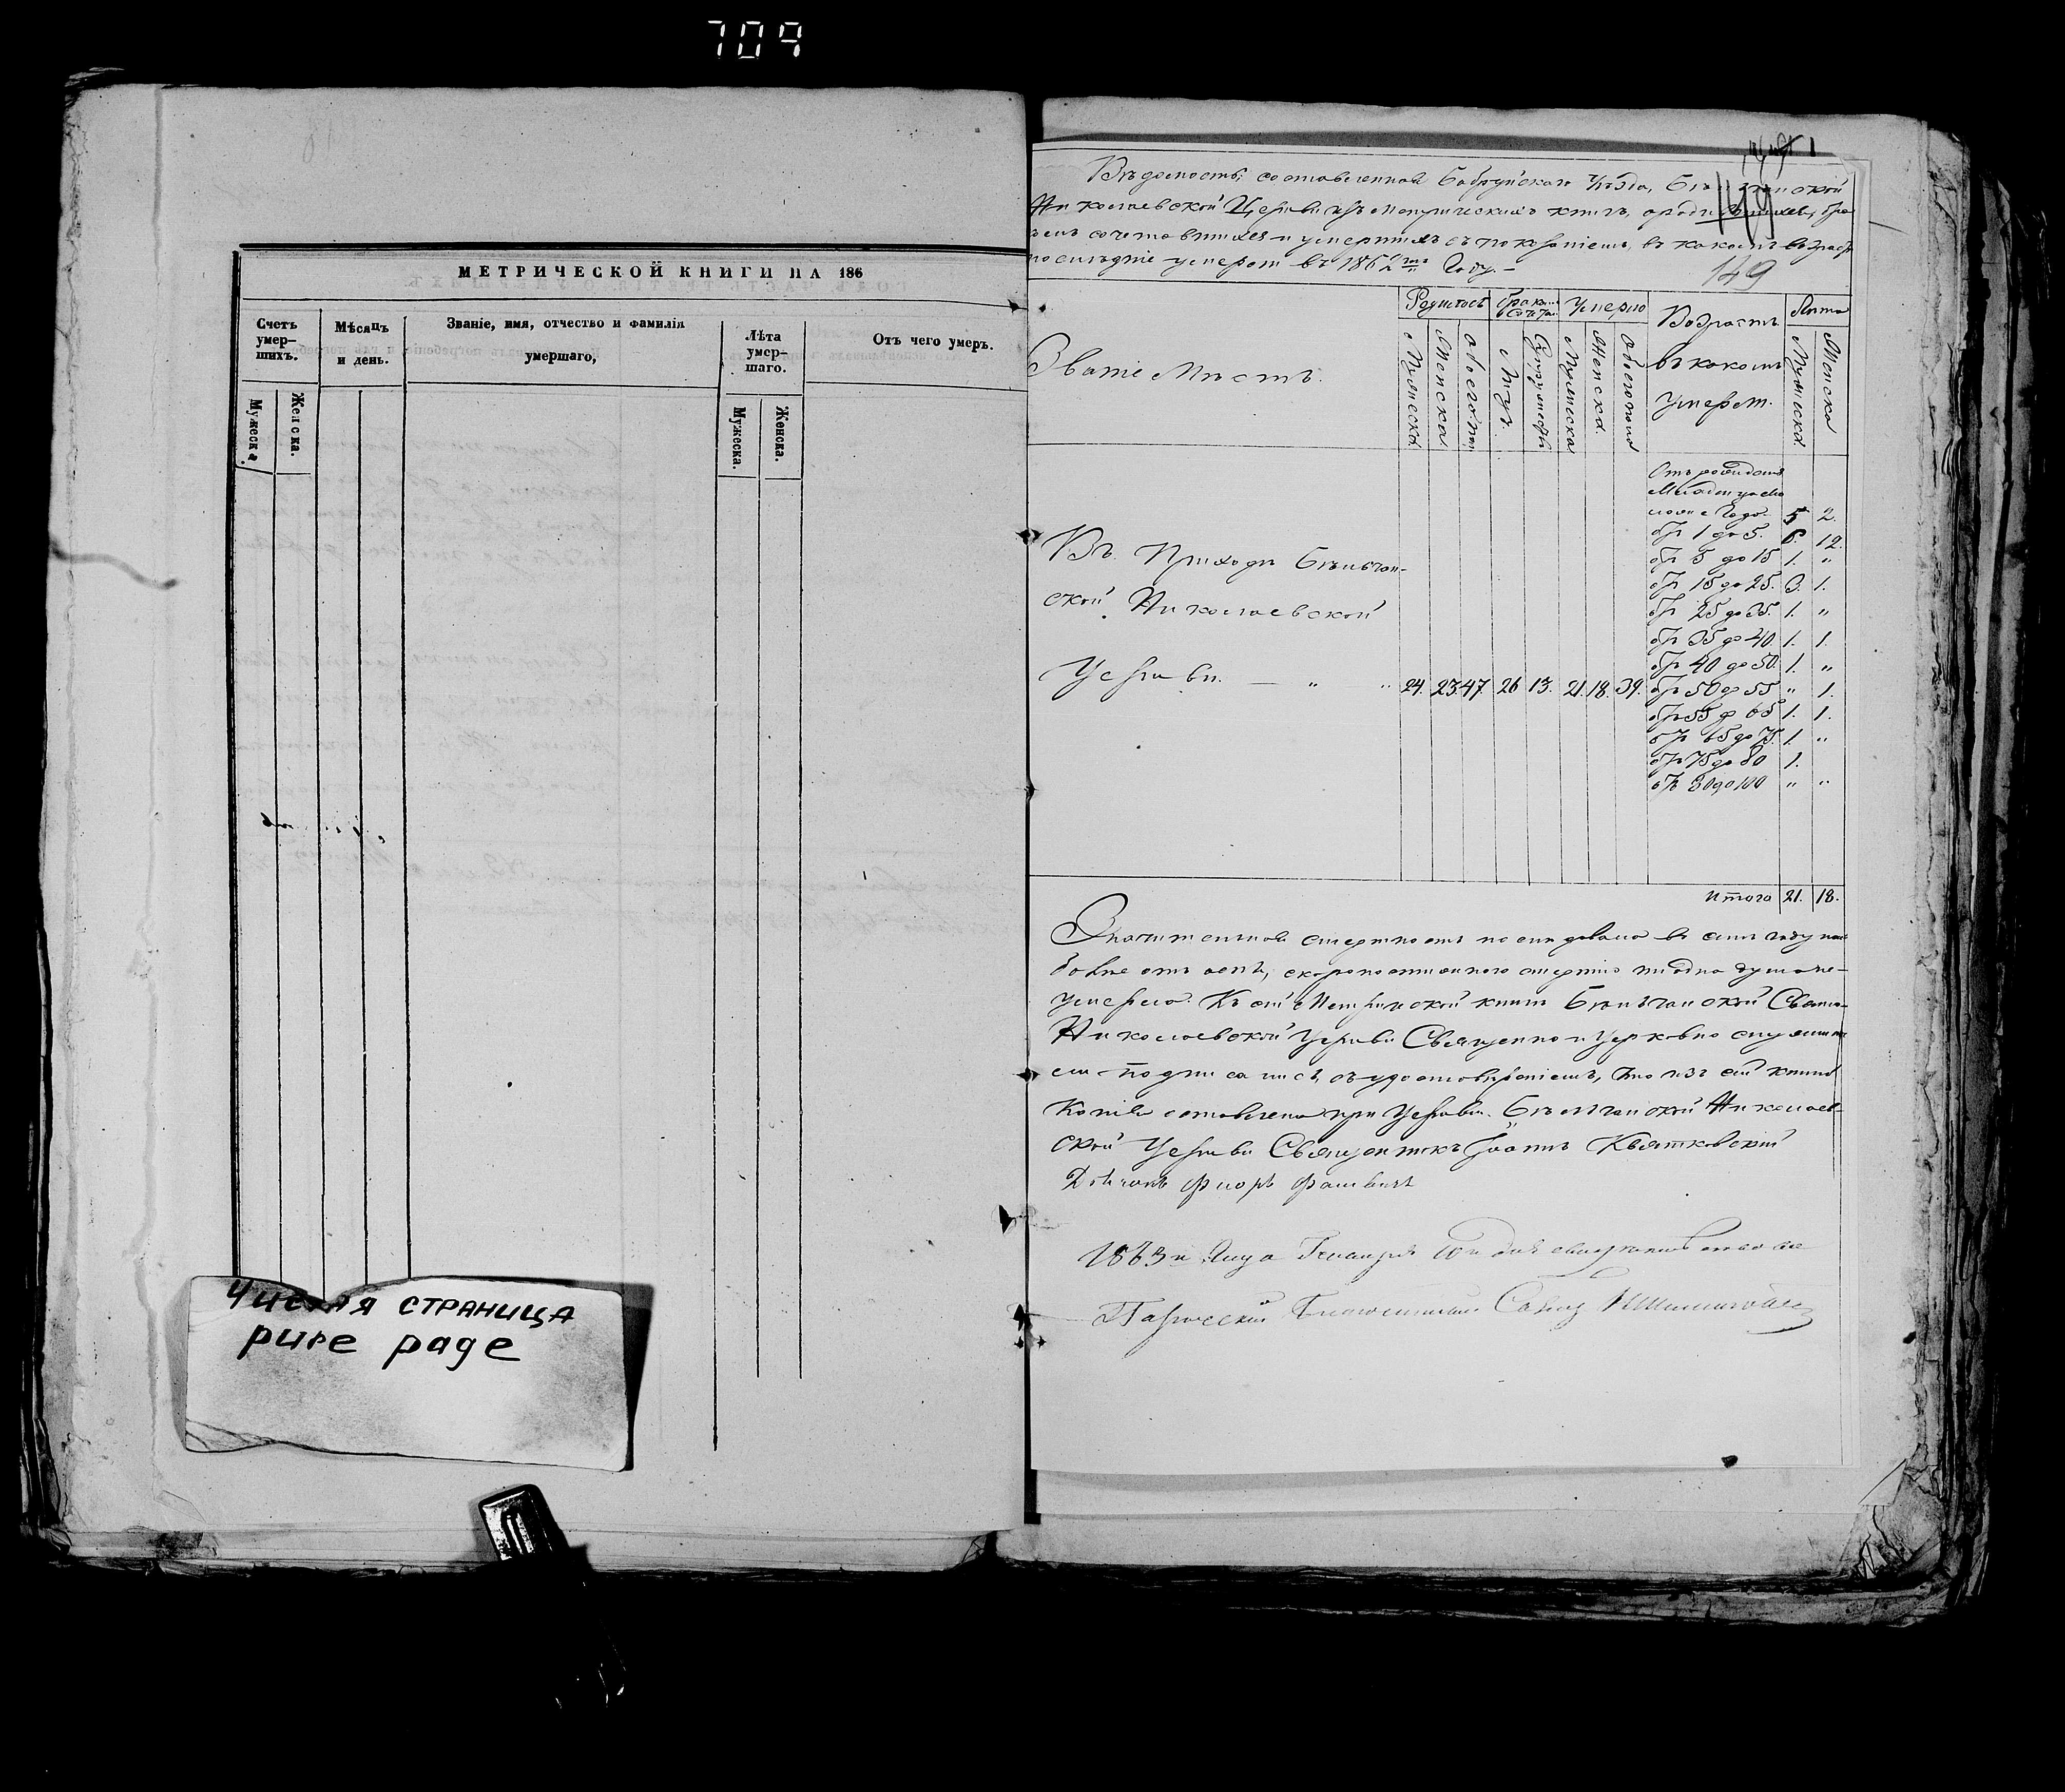 709
МЕТРИЧЕСКОЙ КНИГИ НА 186
Счетъ умер-шихъ.
Мужеска.
Женска.
Мѣсяцъ и день.
Званіе, имя, отчество и фамилія умершаго,
Лѣта умер-шаго.
Мужеска.
Женска.
Отъ чего умеръ.
Чистая страница
pure page
149
149
Вѣдомость, составленная Бобруйскаго Уѣзда,
Николаевской Церкви изъ Метрическихъ книгъ, о родившихся, бра-
комъ сочетавшихся и умершихъ съ показаніемъ, въ какомъ возрастѣ
послѣдніе умерли въ 1862мъ Году. –
Званіе Мѣстъ.
Родилось
Мужеска.
Женска.
Обоего пола
Умерло
Мужеска
Женска.
Обоего пола
Возрастъ въ какомъ умерли.
Лѣта
Мужеска.
Женска
Въ Приходѣ
ской Николаевской
Церкви. — " " 24. 23. 47. 26 13. 21. 18. 39.
Отъ рожденія
до Года. 5 2.
отъ 1 до 5. 6. 12.
отъ 5 до 15 1. "
отъ 15 до 25. 3. 1.
отъ 25 до 35. 1. "
отъ 35 до 40. 1. 1.
отъ 40 до 50. 1. "
отъ 50 до 55 " 1.
отъ 55 до 65 1. 1.
отъ 65 до 75. 1. "
отъ 75 до 80 1.
отъ 80 до 100 " "
Итого 21. 18.
Значительная смертность послѣдовала въ семъ году наи-
болѣе отъ оспы, скоропостижною смертію ни одна душа не-
умерла. Къ сей Метрической книгѣ Свято-
Николаевской Церкви Священно и Церковно служите-
ли подписались, съ удостовѣреніемъ, что изъ сей книги
Копія оставлена при Церкви. Николаев-
ской Церкви Священникъ Іоаннъ Квятковскій
1863 г. Января 10 дня
Паричскій Благочинный